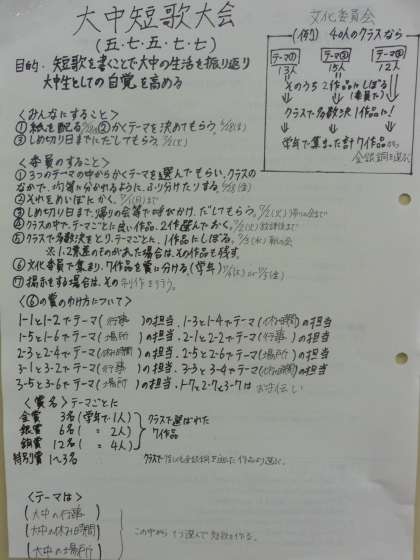 大中短歌大会
(五・七・五・七・七)
目的. 短歌を書くことで大中の生活を振り返り
大中生としての自覚を高める
文化委員会
(例) 40人のクラスなら
テーマ① テーマ② テーマ③
13人 15人 12人
そのうち2作品にしぼる
(委員だ)
クラスで多数決1作品に!
学年で集まった計7作品から
金銀銅を選ぶ
<みんなにすること>
①紙を配る ②かくテーマを決めてもらう.
③しめ切り日までにだしてもらう.
<委員のすること>
①3つのテーマの中からかくテーマを選んでもらい、クラスの
なかで、均等に分かれるように、ふり分けたりする.
②それをめいぼにかく.
③しめ切り日まで、帰りの会等で呼びかけ、だしてもらう.
④クラスの中で、テーマごとに良い作品、2作選んでおく.
⑤クラスで多数決をとり、テーマごとに、1作品にしぼる.
※1.2票差のものがあった場合は、その作品を残す.
⑥文化委員で集まり、7作品を賞に分ける.(学年)
⑦掲示をする場合は、その制作を行う.
<⑥の賞のわけ方について>
1-1と1-2でテーマ(行事)の担当.1-3と1-4でテーマ(休み時間)の担当
1-5と1-6でテーマ(場所)の担当.2-1と2-2でテーマ(行事)の担当
2-3と2-4でテーマ(休み時間)の担当.2-5と2-6でテーマ(場所)の担当
3-1と3-2でテーマ(行事)の担当.3-3と3-4でテーマ(休み時間)の担当
3-5と3-6でテーマ(場所)の担当.1-7と2-7と3-7はお手伝い
<賞名>テーマごとに
金賞 3名(学年で1人)
銀賞 6名( 〃 2人)
銅賞 12名( 〃 4人)
クラスで選ばれた
7作品
特別賞 1〜3名
<テーマは>
(大中の行事)
(大中の休み時間)
(大中の場所)
この中から1つ選んで短歌を作る.